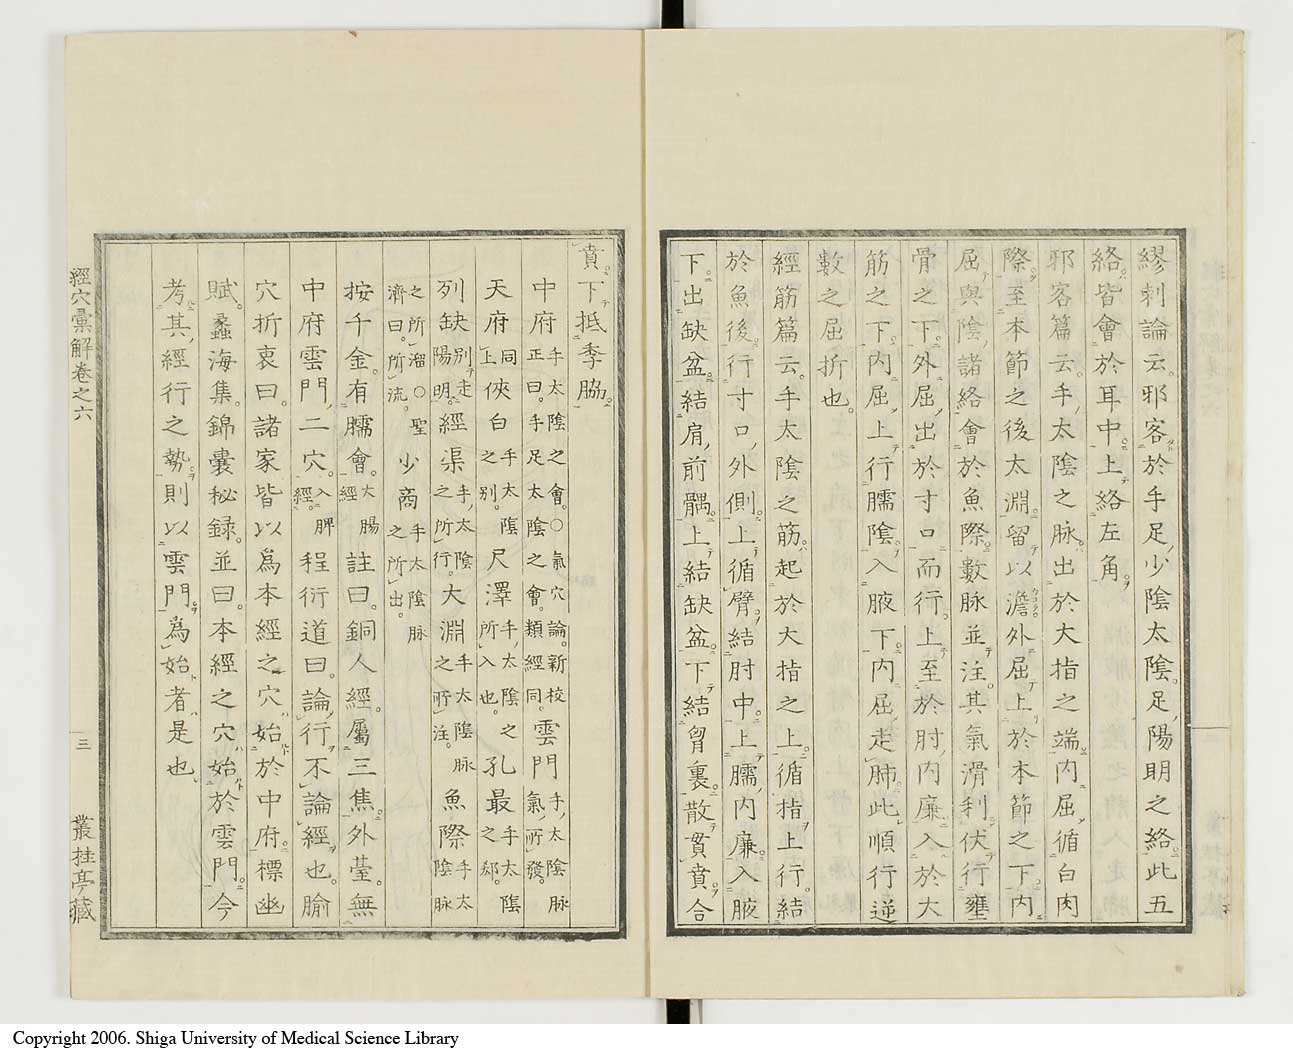 繆刺論云邪客於手足少陰太陰足陽明之絡此五
絡皆會於耳中上絡左角
邪客篇云手太陰之脉出於大指之端内屈循白肉
際至本節之後太淵留以澹外屈上於本節之下内
屈與陰諸絡會於魚際數脉並注其氣滑利伏行壅
骨之下外屈出於寸口而行上至於肘内廉入於大
筋之下内屈上行臑陰入腋下内屈走肺此順行逆
數之屈折也
經筋篇云手太陰之筋起於大指之上循指上行結
於魚後行寸口外側上循臂結肘中上臑内廉入腋
下出缺盆結肩前髃上結缺盆下結胷裏散貫賁合
賁下抵季脇
中府手太陰之會○氣穴論新校正曰手足太陰之會類經同雲門手太陰脉氣所發
天府同上俠白手太陰之别尺澤手太陰之所入也孔最手太陰之郄
列缺别走陽明經渠手太陰之所行大淵手太陰脉之所注魚際手太陰脉
之所溜○聖濟曰所流少商手太陰脉之所出
按千金有臑會大腸經註曰銅人經屬三焦外臺無
中府雲門二穴入脾經程衍道曰論行不論經也腧
穴折衷曰諸家皆以爲本經之穴始於中府標幽
賦蠡海集錦囊秘録並曰本經之穴始於雲門今
考其經行之勢則以雲門爲始者是也
經穴彙解卷之六
三
叢桂亭藏
Copyright 2006. Shiga University of Medical Science Library